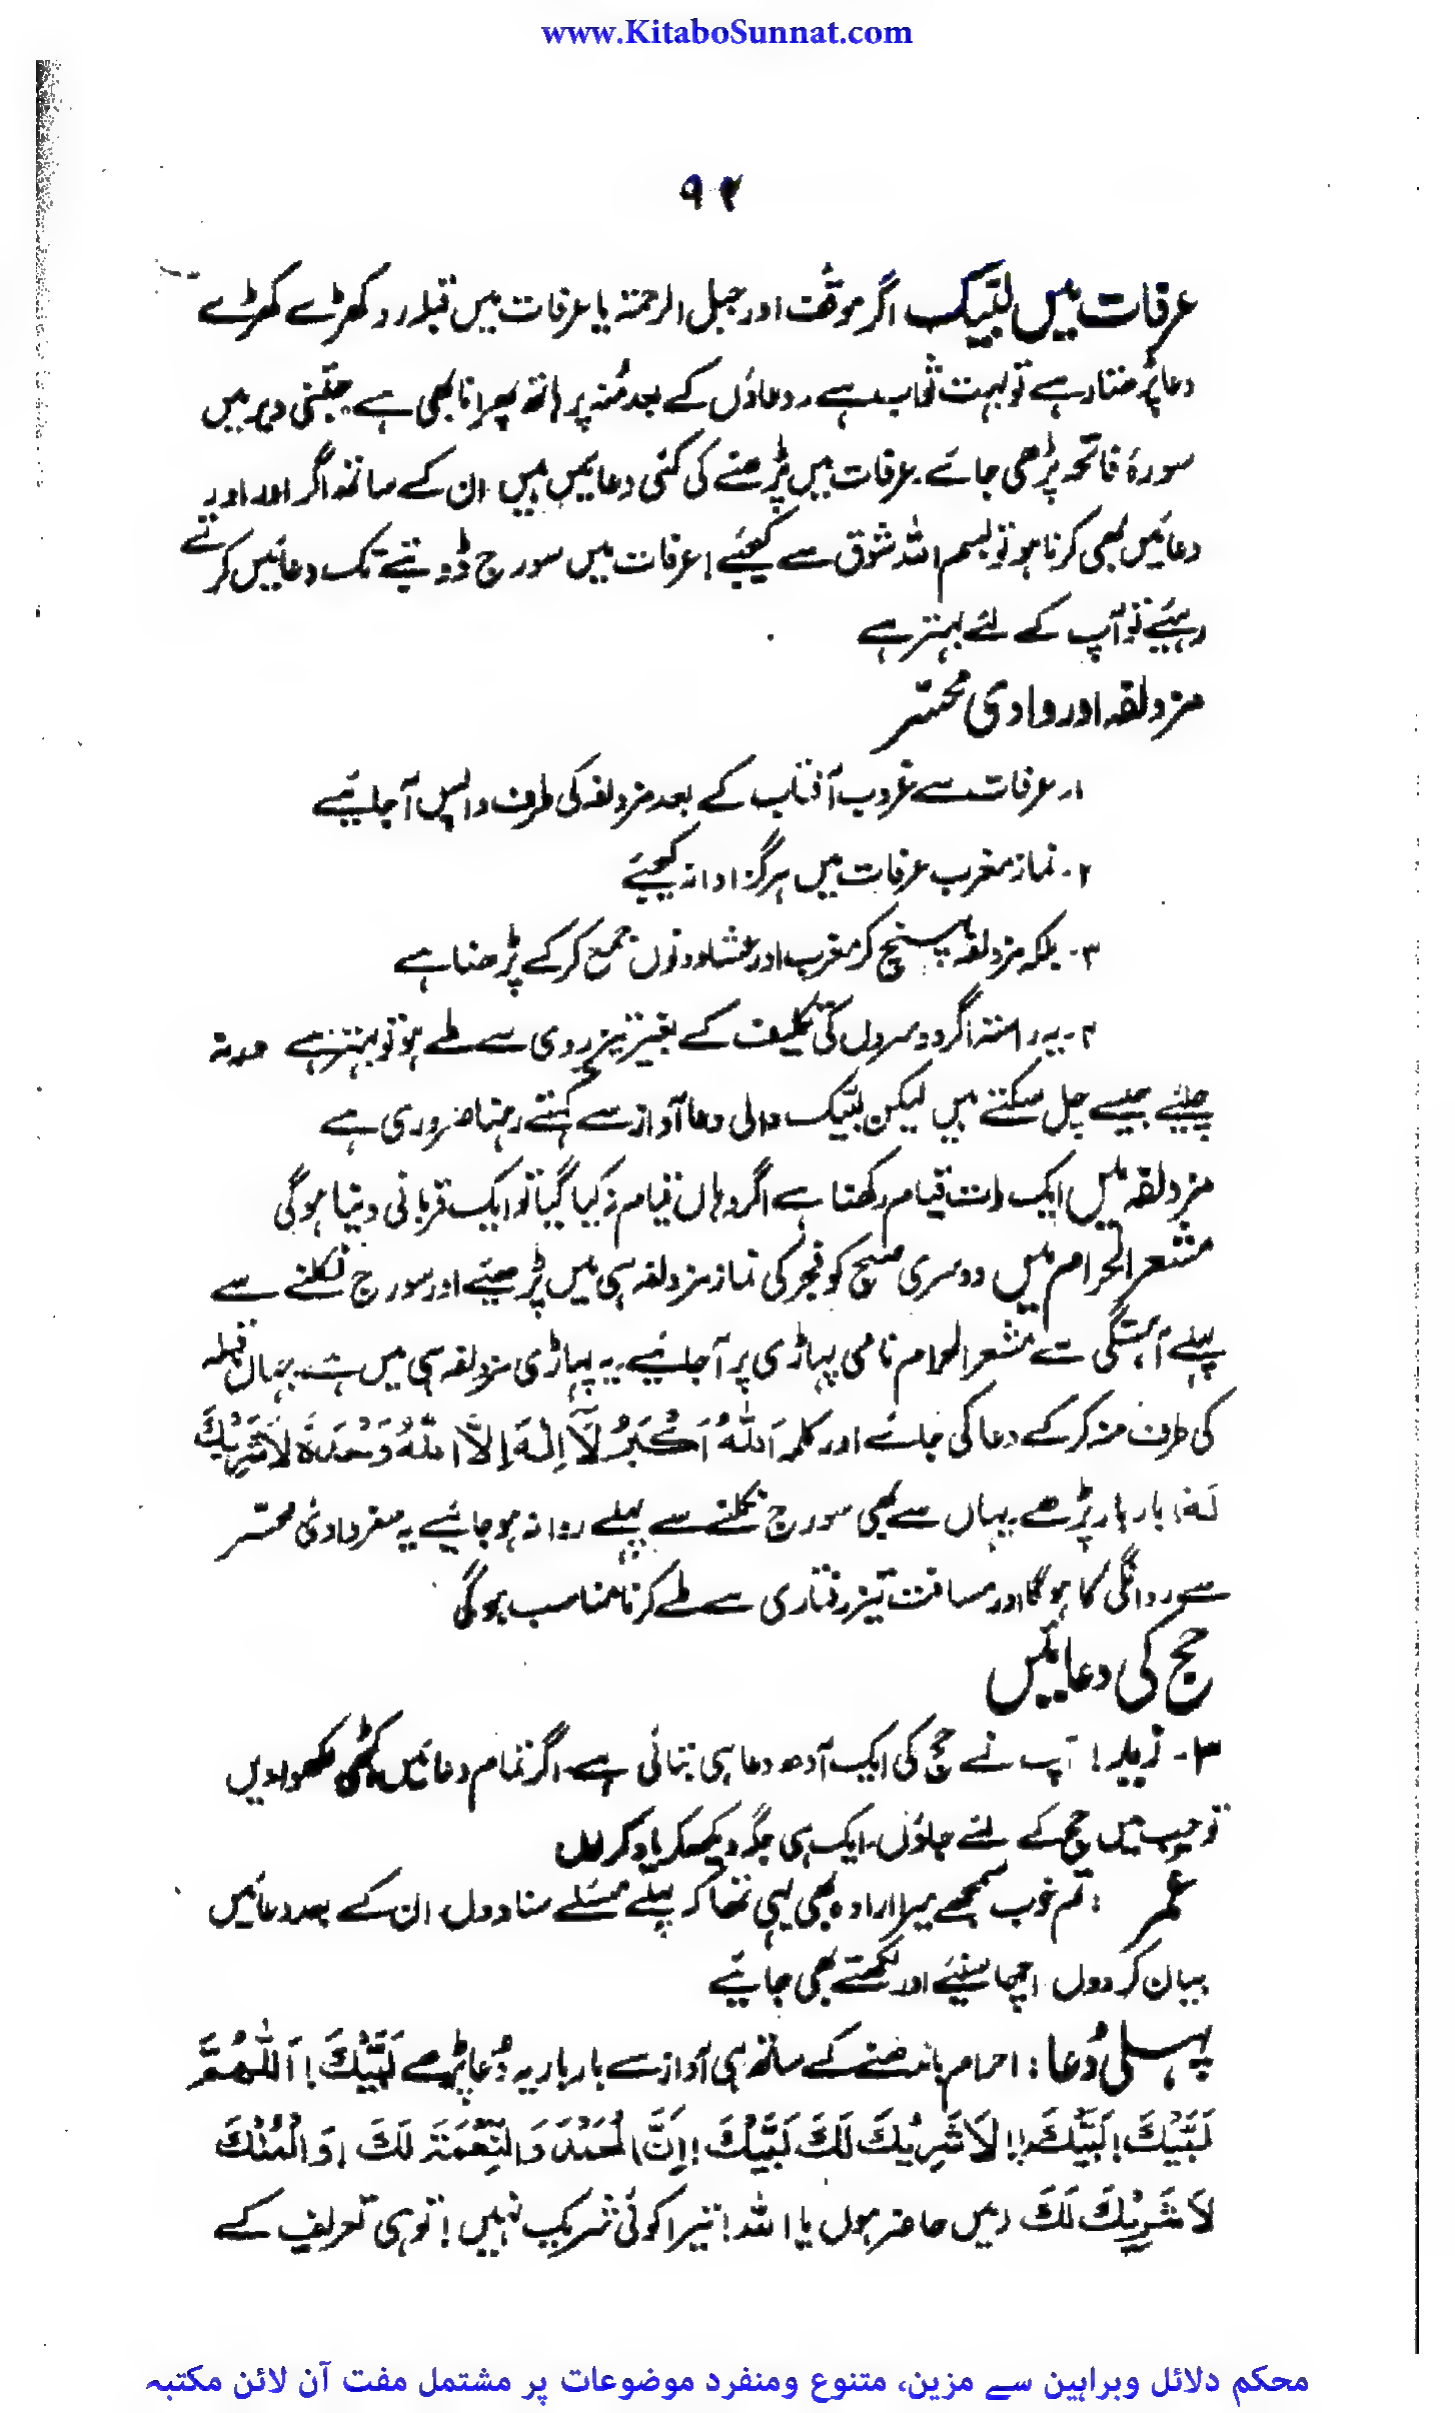 www.KitaboSunnat.com
۹۲
عرفات میں لبّیک اگر موقف اور جبل الرحمۃ یا عرفات میں قبلہ رو کھڑے کھڑے
دعا پڑھتا رہے تو بہت ثواب ہے۔ دعاؤں کے بعد مُنہ پر ہاتھ پھیرنا بھی ہے جتنی دیر میں
سورۂ فاتحہ پڑھی جائے۔ عرفات میں پڑھنے کی کئی دعائیں ہیں ان کے ساتھ اگر اور اور
دعائیں بھی کرنا ہو تو بسم اللہ شوق سے کیجئے! عرفات میں سورج ڈوبنے تک دعائیں کرتے
رہیئے تو آپ کے لئے بہتر ہے
مزدلفہ اور وادی محسّر
۱۔ عرفات سے غروب آفتاب کے بعد مزدلفہ کی طرف واپس آجائیے
۲۔ نماز مغرب عرفات میں ہرگز ادا نہ کیجئے
۳۔ بلکہ مزدلفہ پہنچ کر مغرب اور عشاء دونوں جمع کرکے پڑھنا ہے
۴۔ یہ راستہ اگر دوسروں کی تکلیف کے بغیر تیز روی سے طے ہو تو بہتر ہے ورنہ
چلیئے جیسے چل سکتے ہیں لیکن لبّیک والی دعا آواز سے کہتے رہنا ضروری ہے
مزدلفہ میں ایک رات قیام رکھنا ہے اگر وہاں قیام نہ کیا گیا تو ایک قربانی دینا ہوگی
مشعر الحرام میں دوسری صبح کو فجر کی نماز مزدلفہ ہی میں پڑھیئے اور سورج نکلنے سے
پہلے آہستگی سے مشعر الحرام نامی پہاڑی پر آجائیے۔ یہ پہاڑی مزدلفہ ہی میں ہے۔ یہاں قبلہ
کی طرف منہ کرکے دعا کی جائے اور کلمہ اَللّٰہُ اَکْبَرُ لَآ اِلٰہَ اِلَّا اللّٰہُ وَحْدَہٗ لَا شَرِیْكَ
لَہٗ بار بار پڑھے یہاں سے بھی سورج نکلنے سے پہلے روانہ ہو جائیے یہ سفر وادیٔ محسّر
سے روانگی کا ہوگا اور مسافت تیز رفتاری سے طے کرنا مناسب ہوگی
حج کی دعائیں
۳۔ زبیر! آپ نے حج کی ایک آدھ دعا ہی بتائی ہے۔ اگر تمام دعائیں لکھوا دیں
تو جب میں حج کے لئے جاؤں۔ ایک ہی جگہ دیکھ کر یاد کر لوں
عمر : تم خوب سمجھے میرا ارادہ بھی یہی تھا کہ پہلے مسئلے سنا دوں ان کے بعد دعائیں
بیان کر دوں اچھا سنیئے اور لکھتے بھی جائیے
پہلی دُعا : احرام باندھنے کے ساتھ ہی آواز سے بار بار یہ دُعا پڑھے لَبَّیْكَ! اَللّٰھُمَّ
لَبَّیْكَ! لَبَّیْكَ!! لَا شَرِیْكَ لَكَ لَبَّیْكَ! اِنَّ الْحَمْدَ وَالنِّعْمَۃَ لَكَ، وَالْمُلْكَ
لَا شَرِیْكَ لَكَ (میں حاضر ہوں یا اللہ! تیرا کوئی شریک نہیں! تو ہی تعریف کے
محکم دلائل وبراہین سے مزین، متنوع ومنفرد موضوعات پر مشتمل مفت آن لائن مکتبہ